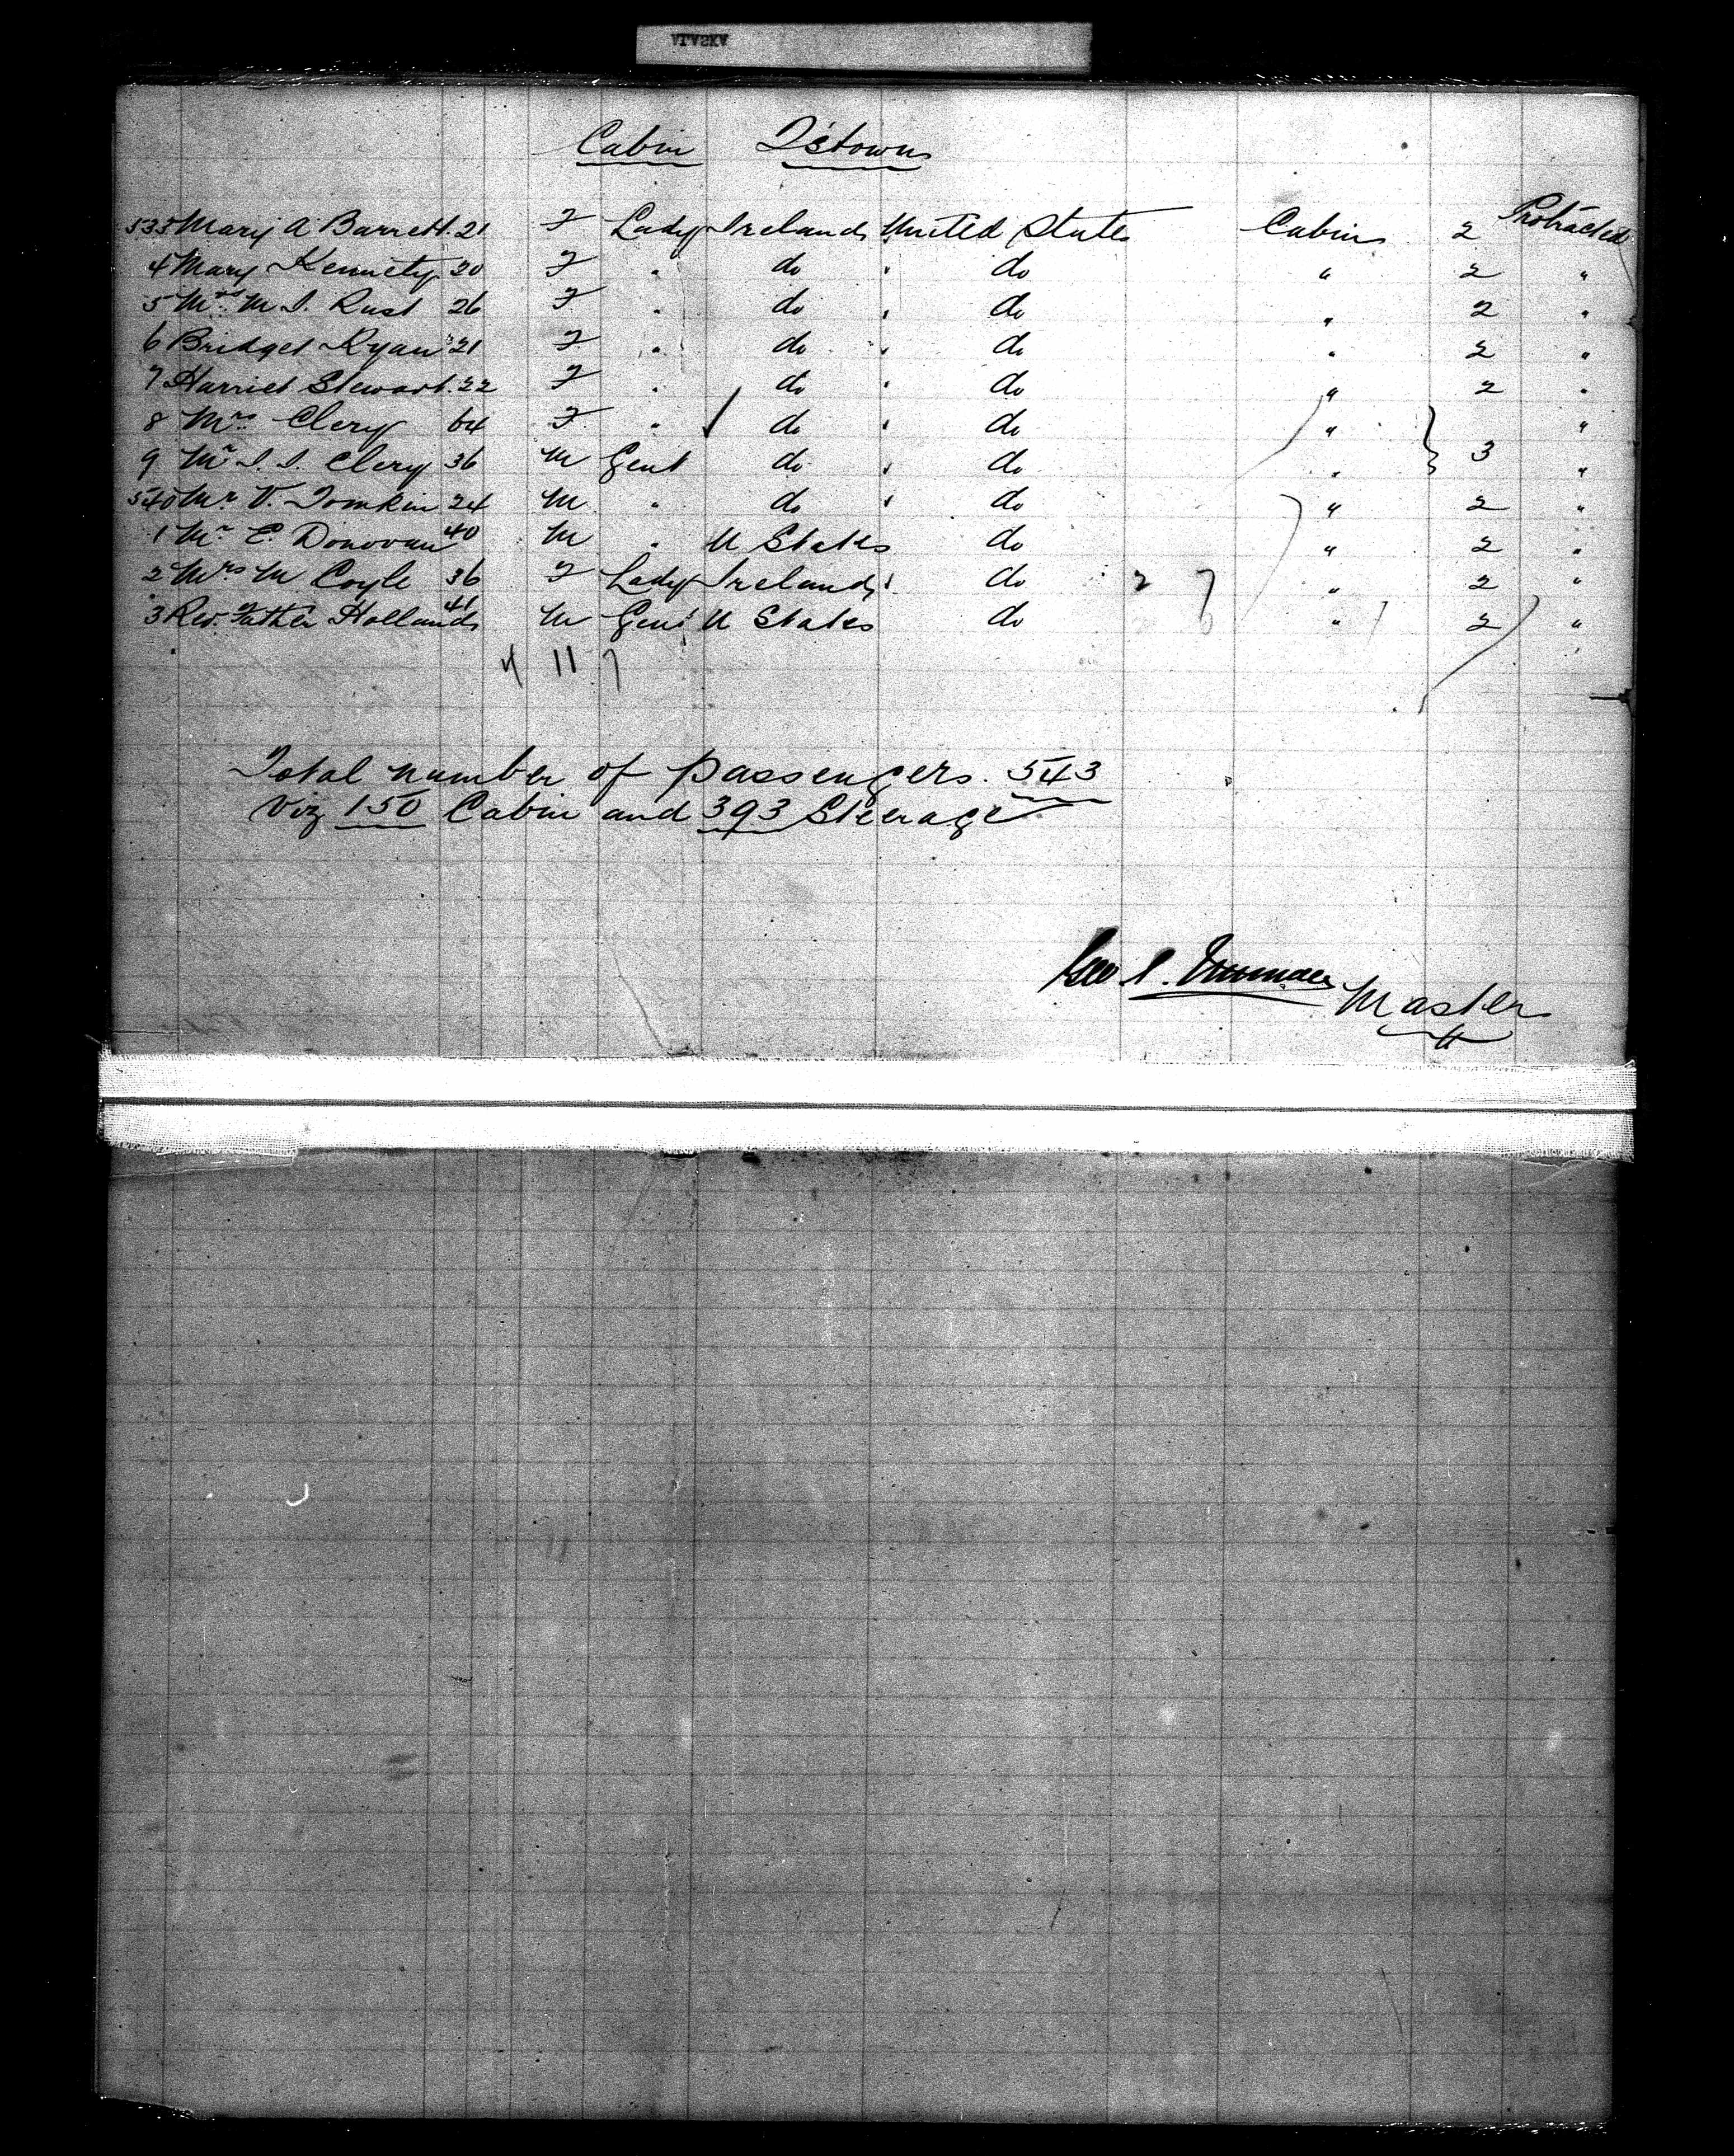 Cabin Q'stown
533 Mary A Barrett. 21 F Lady Ireland United States Cabin 2 Protracted
4 Mary Kennety 20 F " do " do " 2 "
5 Mrs M. J. Rust 26 F " do " do " 2 "
6 Bridget Ryan 21 F " do " do " 2 "
7 Harriet Stewart. 22 F " do " do " 2 "
8 Mrs Clery 64 F " do " do " "
9 Mr J. J. Clery 36 M Gent do " do " 3 "
540 Mr V. Tomkin 24 M " do " do " 2 "
1 Mr E. Donovan 40 M " U States do " 2 "
2 Mrs M Coyle 36 F Lady Ireland " do 2 7 " 2 "
3 Rev. Father Holland 41 M Gent U States do " 2 "
4 11 7
Total number of passengers. 543
Viz 150 Cabin and 393 Steerage
Geo S. Master